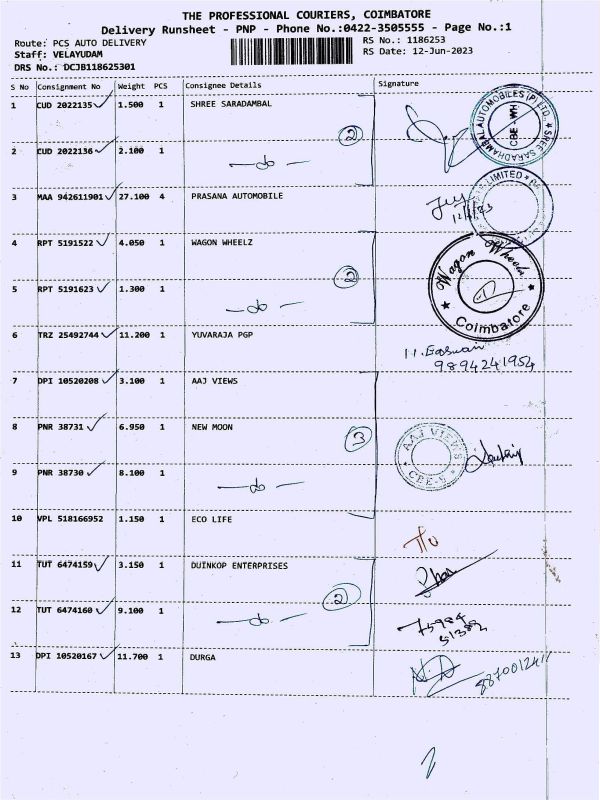 THE PROFESSIONAL COURIERS, COIMBATORE
Delivery Runsheet - PNP - Phone No.:0422-3505555 - Page No.:1
Route: PCS AUTO DELIVERY RS No.: 1186253
Staff: VELAYUDAM RS Date: 12-Jun-2023
DRS No.: DCJB118625301
S No Consignment No Weight PCS Consignee Details Signature
1 CUD 2022135 1.500 1 SHREE SARADAMBAL
2
2 CUD 2022136 2.100 1 —do—
SREE SARADHAMBAL AUTOMOBILES (P) LTD. CBE - WH
3 MAA 942611901 27.100 4 PRASANA AUTOMOBILE
LIMITED
4 RPT 5191522 4.050 1 WAGON WHEELZ
2
5 RPT 5191623 1.300 1 —do—
Wagon Wheelz Coimbatore
6 TRZ 25492744 11.200 1 YUVARAJA PGP
9894241954
7 DPI 10520208 3.100 1 AAJ VIEWS
8 PNR 38731 6.950 1 NEW MOON
3
AAJ VIEWS CBE-9
9 PNR 38730 8.100 1 —do—
10 VPL 518166952 1.150 1 ECO LIFE
11 TUT 6474159 3.150 1 DUINKOP ENTERPRISES
2
12 TUT 6474160 9.100 1 —do—
75984
51382
13 DPI 10520167 11.700 1 DURGA